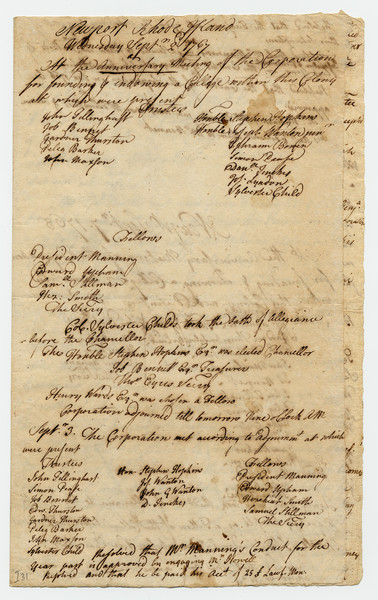 Newport Rhode Island
Wednesday Sept. 2. 1767
At the anniversary Meeting of the Corporation
for founding & endowing a College within this Colony
at which were present
Trustees
John Tillinghast
Job Bennet
Gardner Thurston
Peleg Barker
John Maxson
Honble Stephen Hopkins
Honble Joseph Wanton Junr
Ephraim Bowen
Simon Pease
Danl Jenckes
Jos. Lyndon
Sylvester Child
Fellows
President Manning
Edward Upham
Saml. Stillman
Hez. Smith
The Secry
Col. Sylvester Childs took the Oath of Allegiance
before the Chancellor
The Honble Stephen Hopkins Esqr was elected Chancellor
Job Bennet Esqr Treasurer
Thos Eyres Secry
Henry Wards Esqr was chosen a Fellow
Corporation adjourned till tomorrow Nine oClock AM
Septr 3. The Corporation met according to adjournmt at which
were present
Trustees
John Tillinghast
Simon Pease
Job Bennet
Edw. Thurston
Gardner Thurston
Peleg Barker
John Maxson
Sylvester Child
Hon. Stephen Hopkins
Jos Wanton
John G Wanton
D. Jenckes
Fellows
President Manning
Edward Upham
Hezekiah Smith
Samuel Stillman
The Secry
Resolved that Mr Mannings Conduct for the
Year past is approved in engaging Mr Howell
Resolved that he be paid his Acct of 25 £ Lawf. Mon.